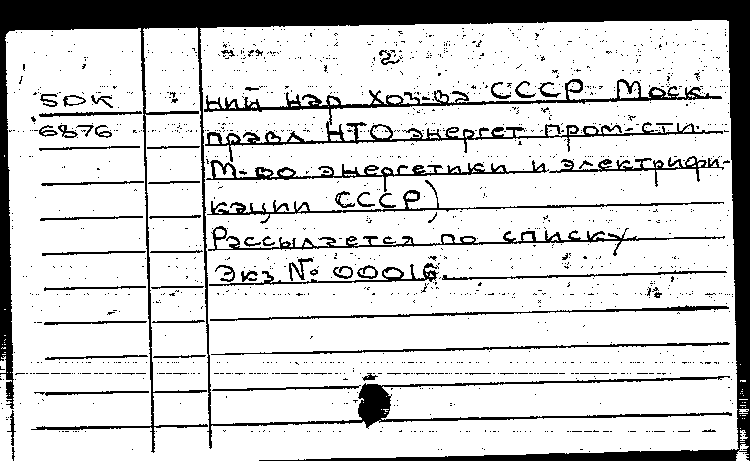 2
БДК ний нар. хоз-ва СССР. Моск.
6876 правл. НТО энергет. пром-сти.
М-во энергетики и электрифи-
кации СССР)
Рассылается по списку
Экз. № 00016.